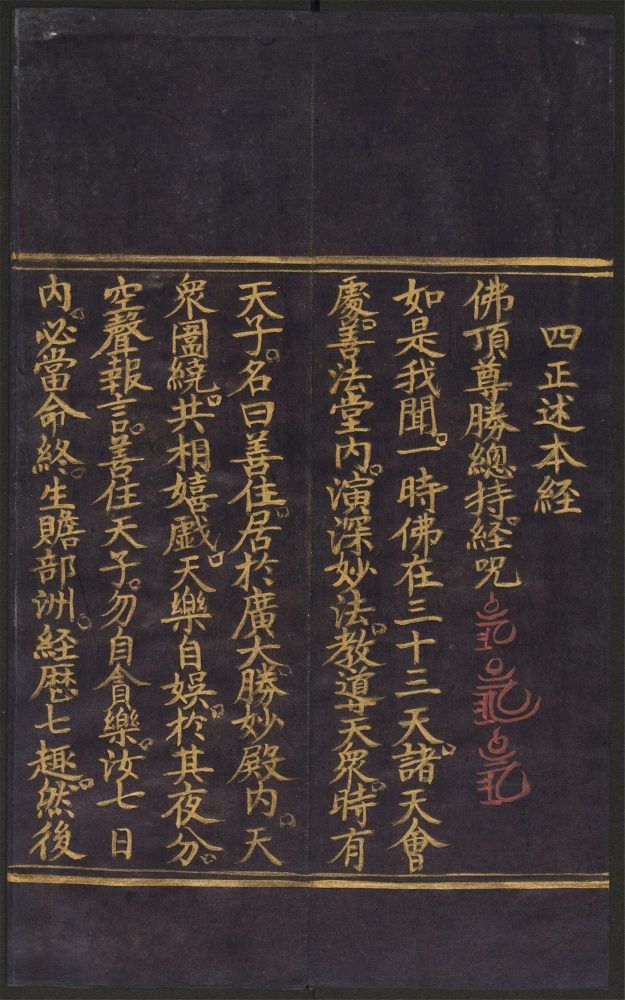 四正述本経
佛頂尊勝總持経呪
如是我聞一時佛在三十三天諸天會
處善法堂内演深妙法教導天衆時有
天子名曰善住居於廣大勝妙殿内天
衆圍繞共相嬉戯天樂自娯於其夜分
空聲報言善住天子勿自貪樂汝七日
内必當命終生贍部洲経歴七趣然後